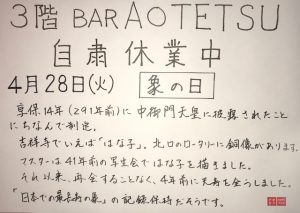 3階 BAR AOTETSU
自粛休業中
4月28日(火) 象の日
享保14年(291年前)に中御門天皇に披露されたこと
にちなんで制定。
吉祥寺でいえば「はな子」。北口のロータリーに銅像があります。
マスターは41年前の写生会ではな子を描きました。
それ以来、再会することなく、4年前に天寿を全うしました。
「日本での最長寿の象」の記録保持だそうです。